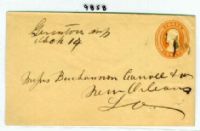 9858
Oct 14
Messrs Buchannon Carroll & Co
New Orleans
La